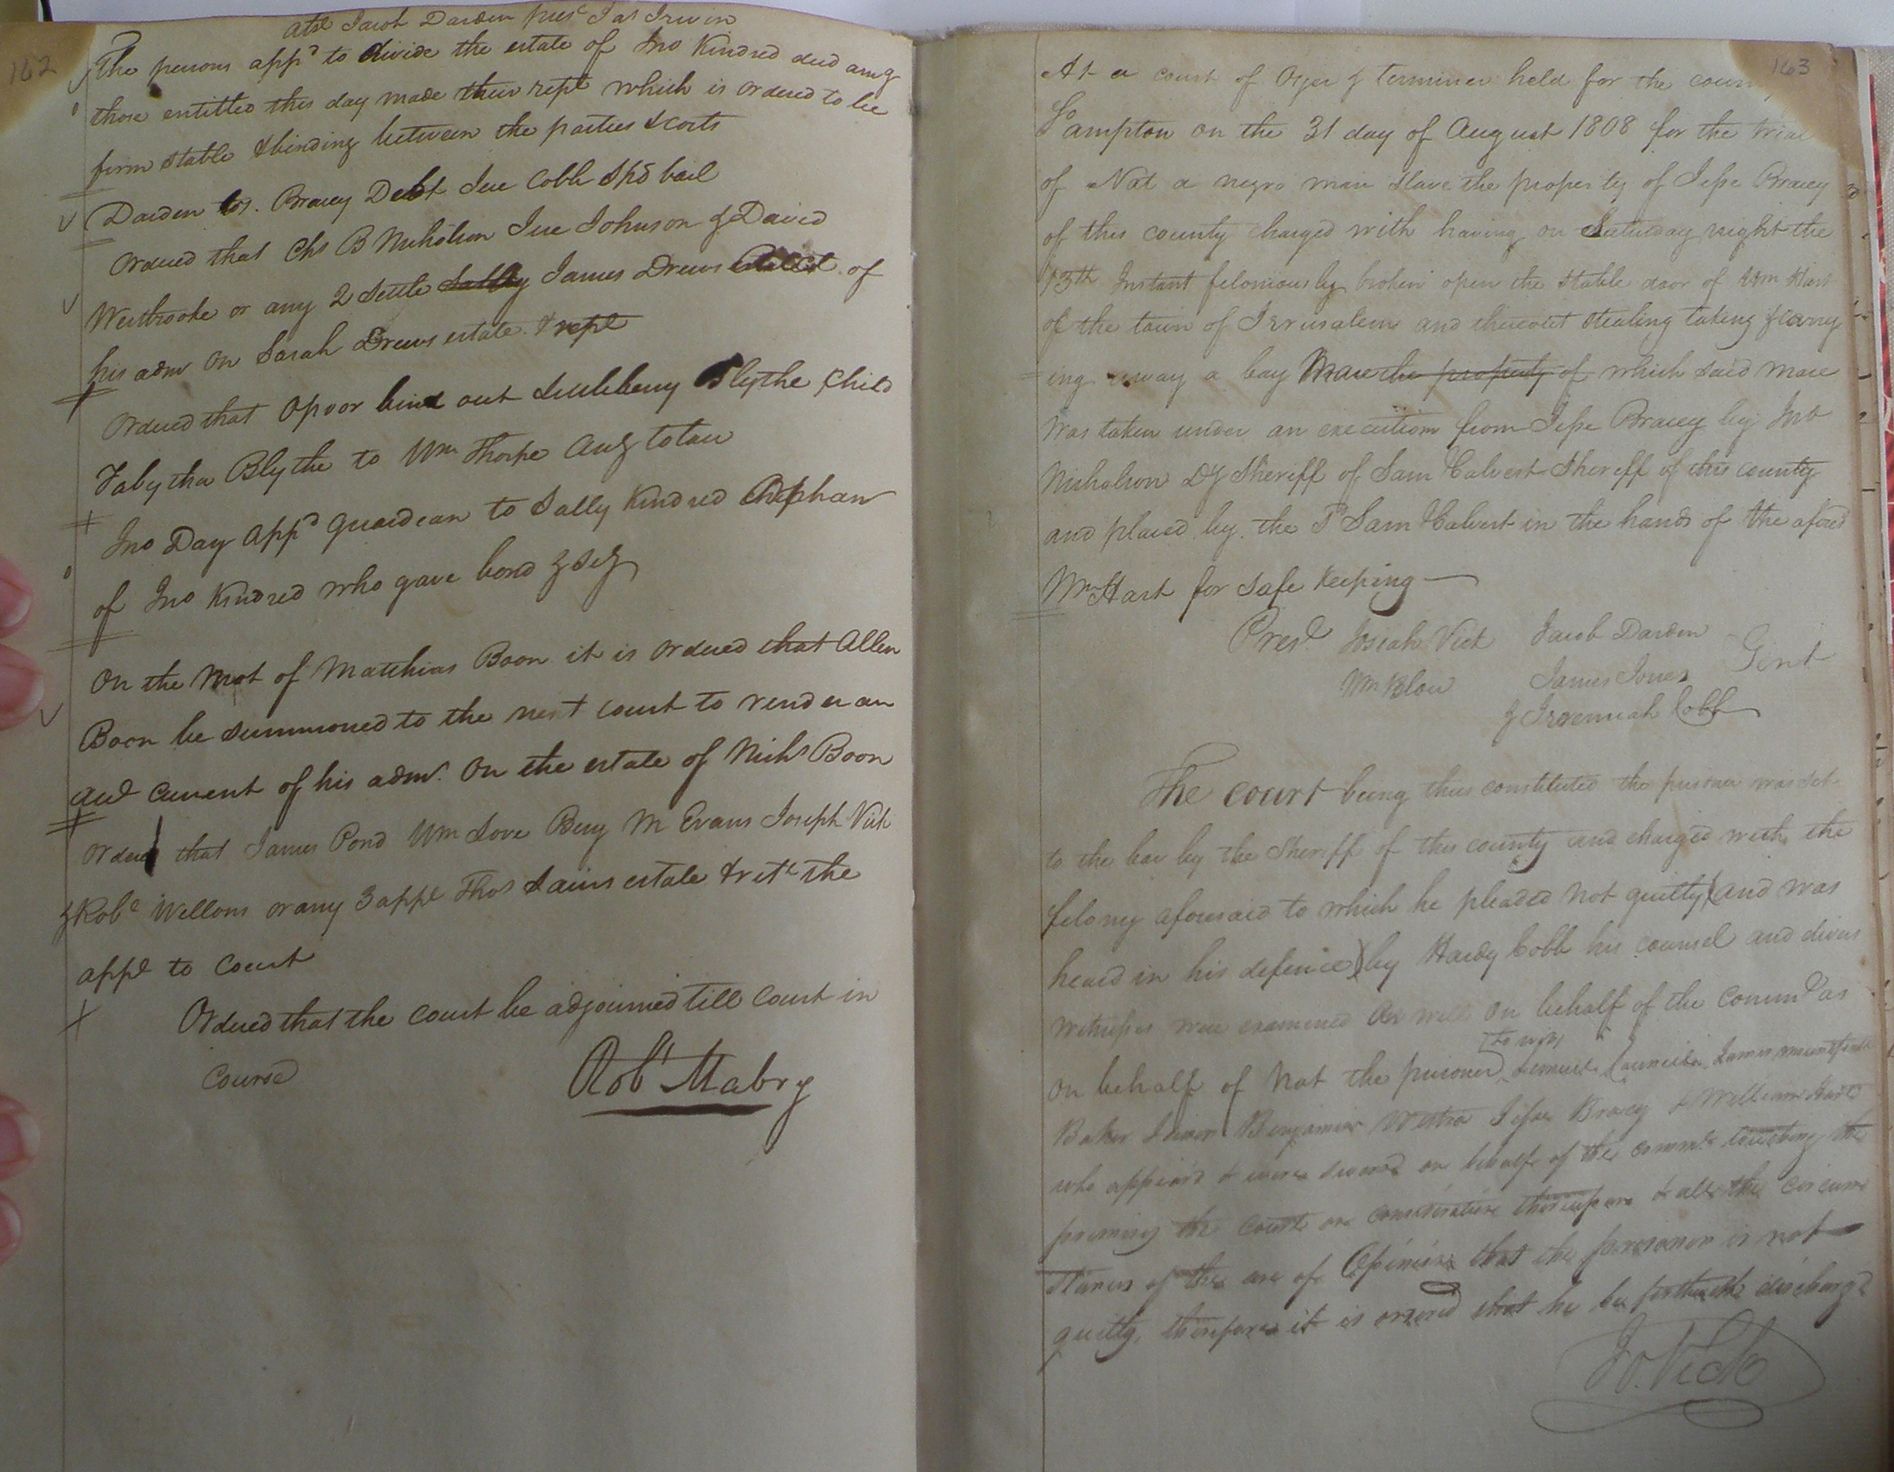 162
abs Jacob Darden pres.t Jas Irwin
The persons app.d to divide the estate of Jno Kindred decd amg
those entitled this day made their rept which is ordered to be
firm stable & binding between the parties & costs
Darden vs. Bracey Debt Jere Cobb Spd bail
Ordered that Chs B Nicholson Jere Johnson & David
Westbrooke or any 2 settle Sally James Drews of
his adm on Sarah Drews estate & rept
Ordered that Opoor bind out Littleberry Blythe Child
Tabytha Blythe to Wm Thorpe Aug to law
Jno Day app.d guardean to Sally Kindred Orphan
of Jno Kindred who gave bond & Sey
On the mot of Matthias Boon it is ordered that Allen
Boon be summoned to the next court to render an
acc.t current of his adm.n on the estate of Nich.s Boon
Ordered that James Pond Wm Love Benj M Evans Joseph Vick
& Rob.t Wellons or any 3 app.e Thos Sains estate & ret.n the
app.t to Court
Ordered that the court be adjourned till Court in
Course
Rob.t Mabry
163
At a court of Oyer & terminer held for the coun
Sampton on the 31 day of August 1808 for the trial
of Nat a negro man slave the property of Jesse Bracey
of this county charged with having on Saturday night the
13th Instant feloniously broken open the stable door of Wm Hart
of the town of Jerusalem and thereout stealing taking & carry
ing away a bay Mare the property of which said mare
was taken under an execution from Jesse Bracey by
Nicholson Dy Sheriff of Sam Calvert Sheriff of this county
and placed by the S.d Sam Calvert in the hands of the afored
Wm Hart for safe keeping —
Pres.t Josiah Vick Jacob Darden
Wm Blow James Jones Gent
& Jeremiah Cobb
The court being thus constituted the prisoner was set
to the bar by the Sheriff of this county and charged with the
felony aforesaid to which he pleaded not guilty (and was
heard in his defence) by Hardy Cobb his counsel and divers
witnesses were examined as well on behalf of the Comm.o as
to wit
on behalf of Nat the prisoner, Lemuel Councill, James
Baker Simon Benjamin Jesse Bracey & William Hart
who appeard & were sworn on behalf of the comm.o touching the
premises the Court on consideration thereupon & all the circum
stances of the are of Opinion that the prisoner is not
guilty, therefore it is orderd that he be forthwith discharg.d
Jo. Vick